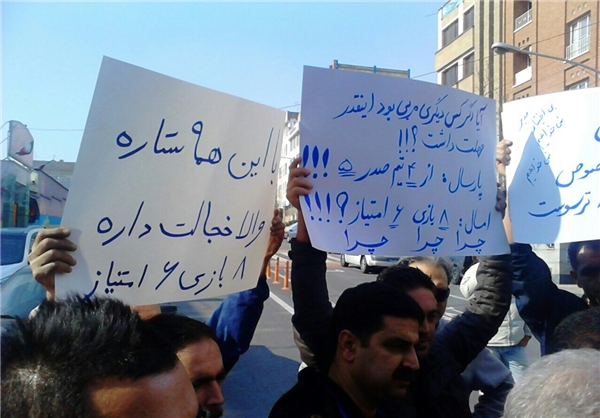 خصوص
ترسوست
آیا اگر کس دیگری مربی بود اینقدر
مهلت داشت؟!!!
پارسال: از ۴ تیم صدر ۵ !!!!
امسال: ۸ بازی ۶ امتیاز؟!!!!
چرا چرا چرا
با این همه ستاره
والا خجالت داره
۸ بازی ۶ امتیاز